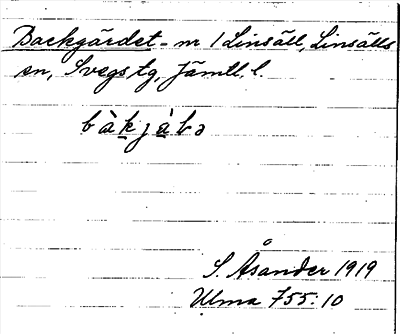 Backgärdet - nr 1 Linsäll, Linsälls
sn, Svegs tg, Jämtl. l.
S. Åsander 1919
Ulma 755:10